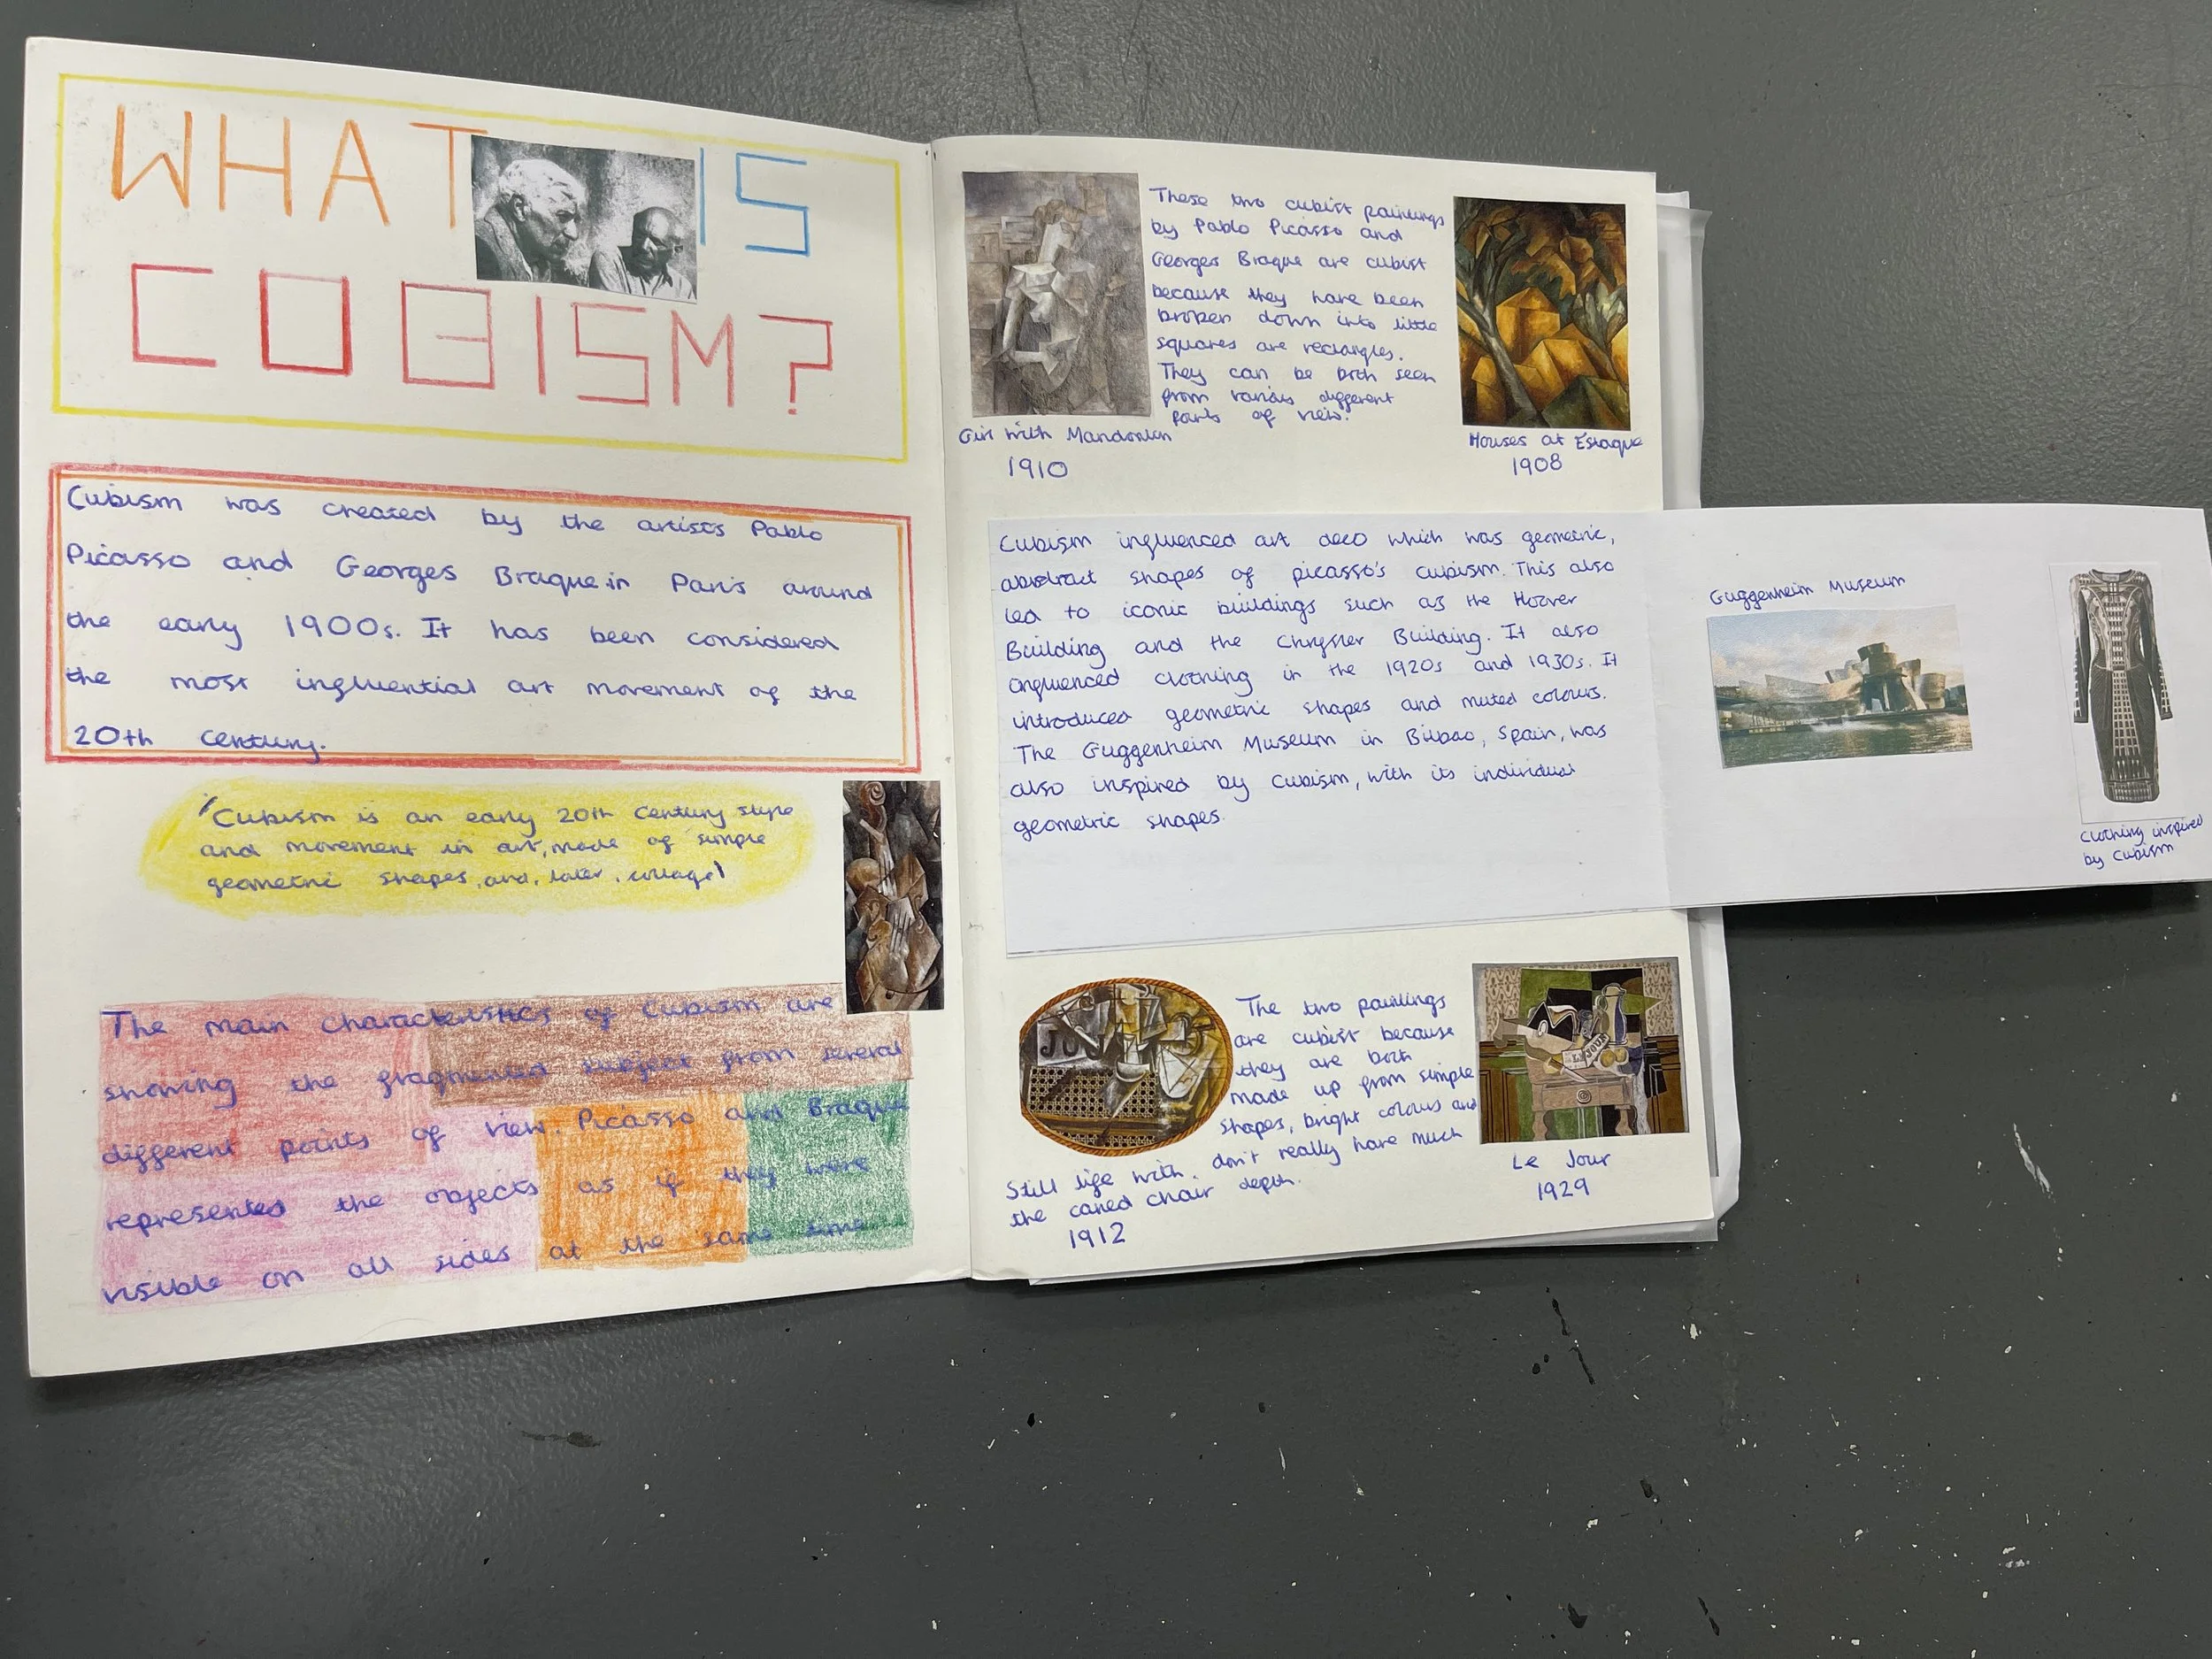 WHAT IS
CUBISM?
Cubism was created by the artists Pablo
Picasso and Georges Braque in Paris around
the early 1900s. It has been considered
the most influential art movement of the
20th Century.
'Cubism is an early 20th Century style
and movement in art, made of simple
geometric shapes, and, later, collage'
The main characteristics of Cubism are
showing the fragmented subject from several
different points of view. Picasso and Braque
represented the objects as if they were
visible on all sides at the same time
These two cubist paintings
by Pablo Picasso and
Georges Braque are cubist
because they have been
broken down into little
squares are rectangles.
They can be both seen
from various different
of view.
Girl with
1910
Houses at Estaque
1908
Cubism influenced art deco which was geometric,
abstract shapes of picasso's cubism. This also
led to iconic buildings such as the Hoover
Building and the Chrysler Building. It also
influenced clothing in the 1920s and 1930s. It
introduced geometric shapes and muted colours.
The Guggenheim Museum in Bilbao, Spain, was
also inspired by Cubism, with its individual
geometric shapes.
Guggenheim Museum
Clothing inspired
by Cubism
JOU
The two paintings
are cubist because
they are both
made up from simple
shapes, bright colours and
don't really have much
depth.
Still life with
the caned chair
1912
Le Jour
1929